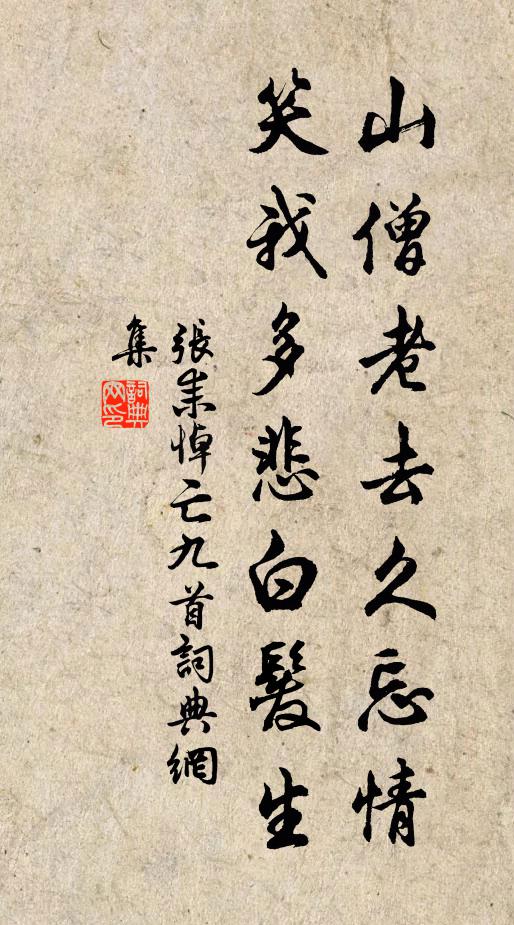 山僧老去久忘情
笑我多悲白髮生
張耒悼亡九首詞典網
集
詞典網印